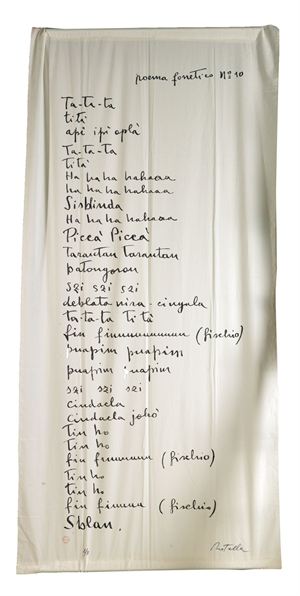 poema fonetico Nº 10
Ta-ta-ta
titi
api ipi oplà
Ta-ta-ta
Tità
Ha ha ha hahaaa
ha ha ha hahaaa
Sisbinda
Ha ha ha hahaaa
Piccà Piccà
Tarautau tarautau
patongoron
szi szi szi
deblata nira-cinyula
ta-ta-ta ti tà
fiu fiuuuuuuuuuu (fischio)
puapim puapim
puapim puapim
szi szi szi
ciudacla
ciudacla johò
Tiu ho
Tiu ho
fiu fiuuuuu (fischio)
Tiu ho
tiu ho
fiu fiuuuu (fischio)
Sblan.
Rotella